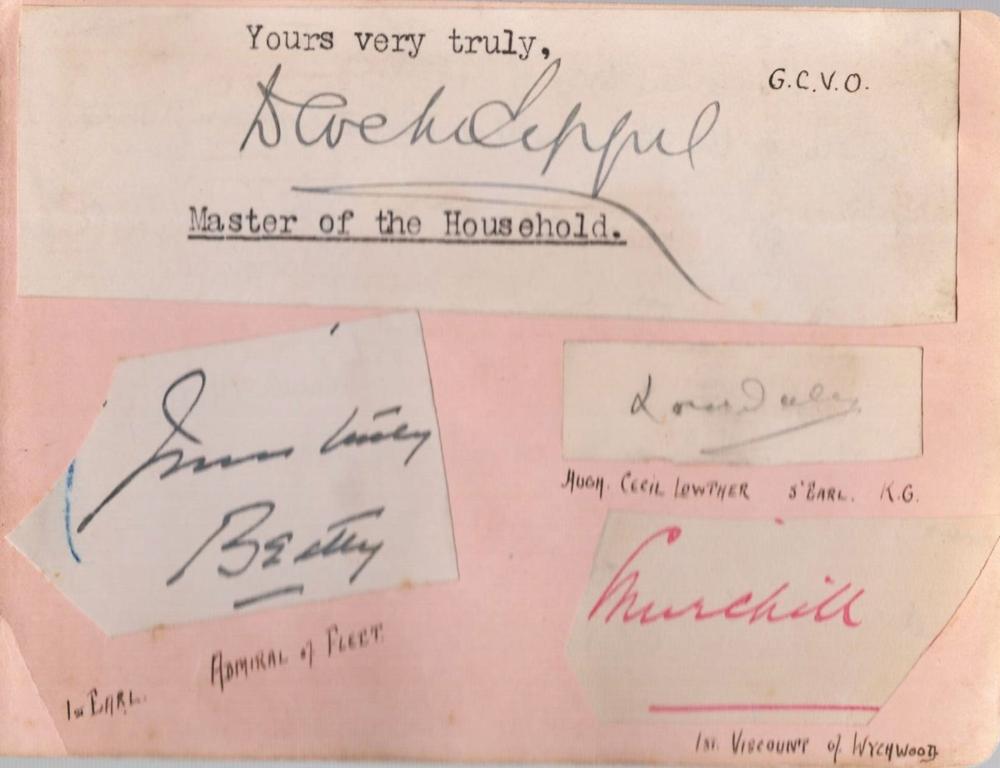 Yours very truly,
G.C.V.O.
Derek Keppel
Master of the Household.
Yours truly
Beatty
ADMIRAL of FLEET.
1st EARL.
Lonsdale
HUGH. CECIL LOWTHER 5th EARL. K.G.
Churchill
1st. VISCOUNT of WYCHWOOD